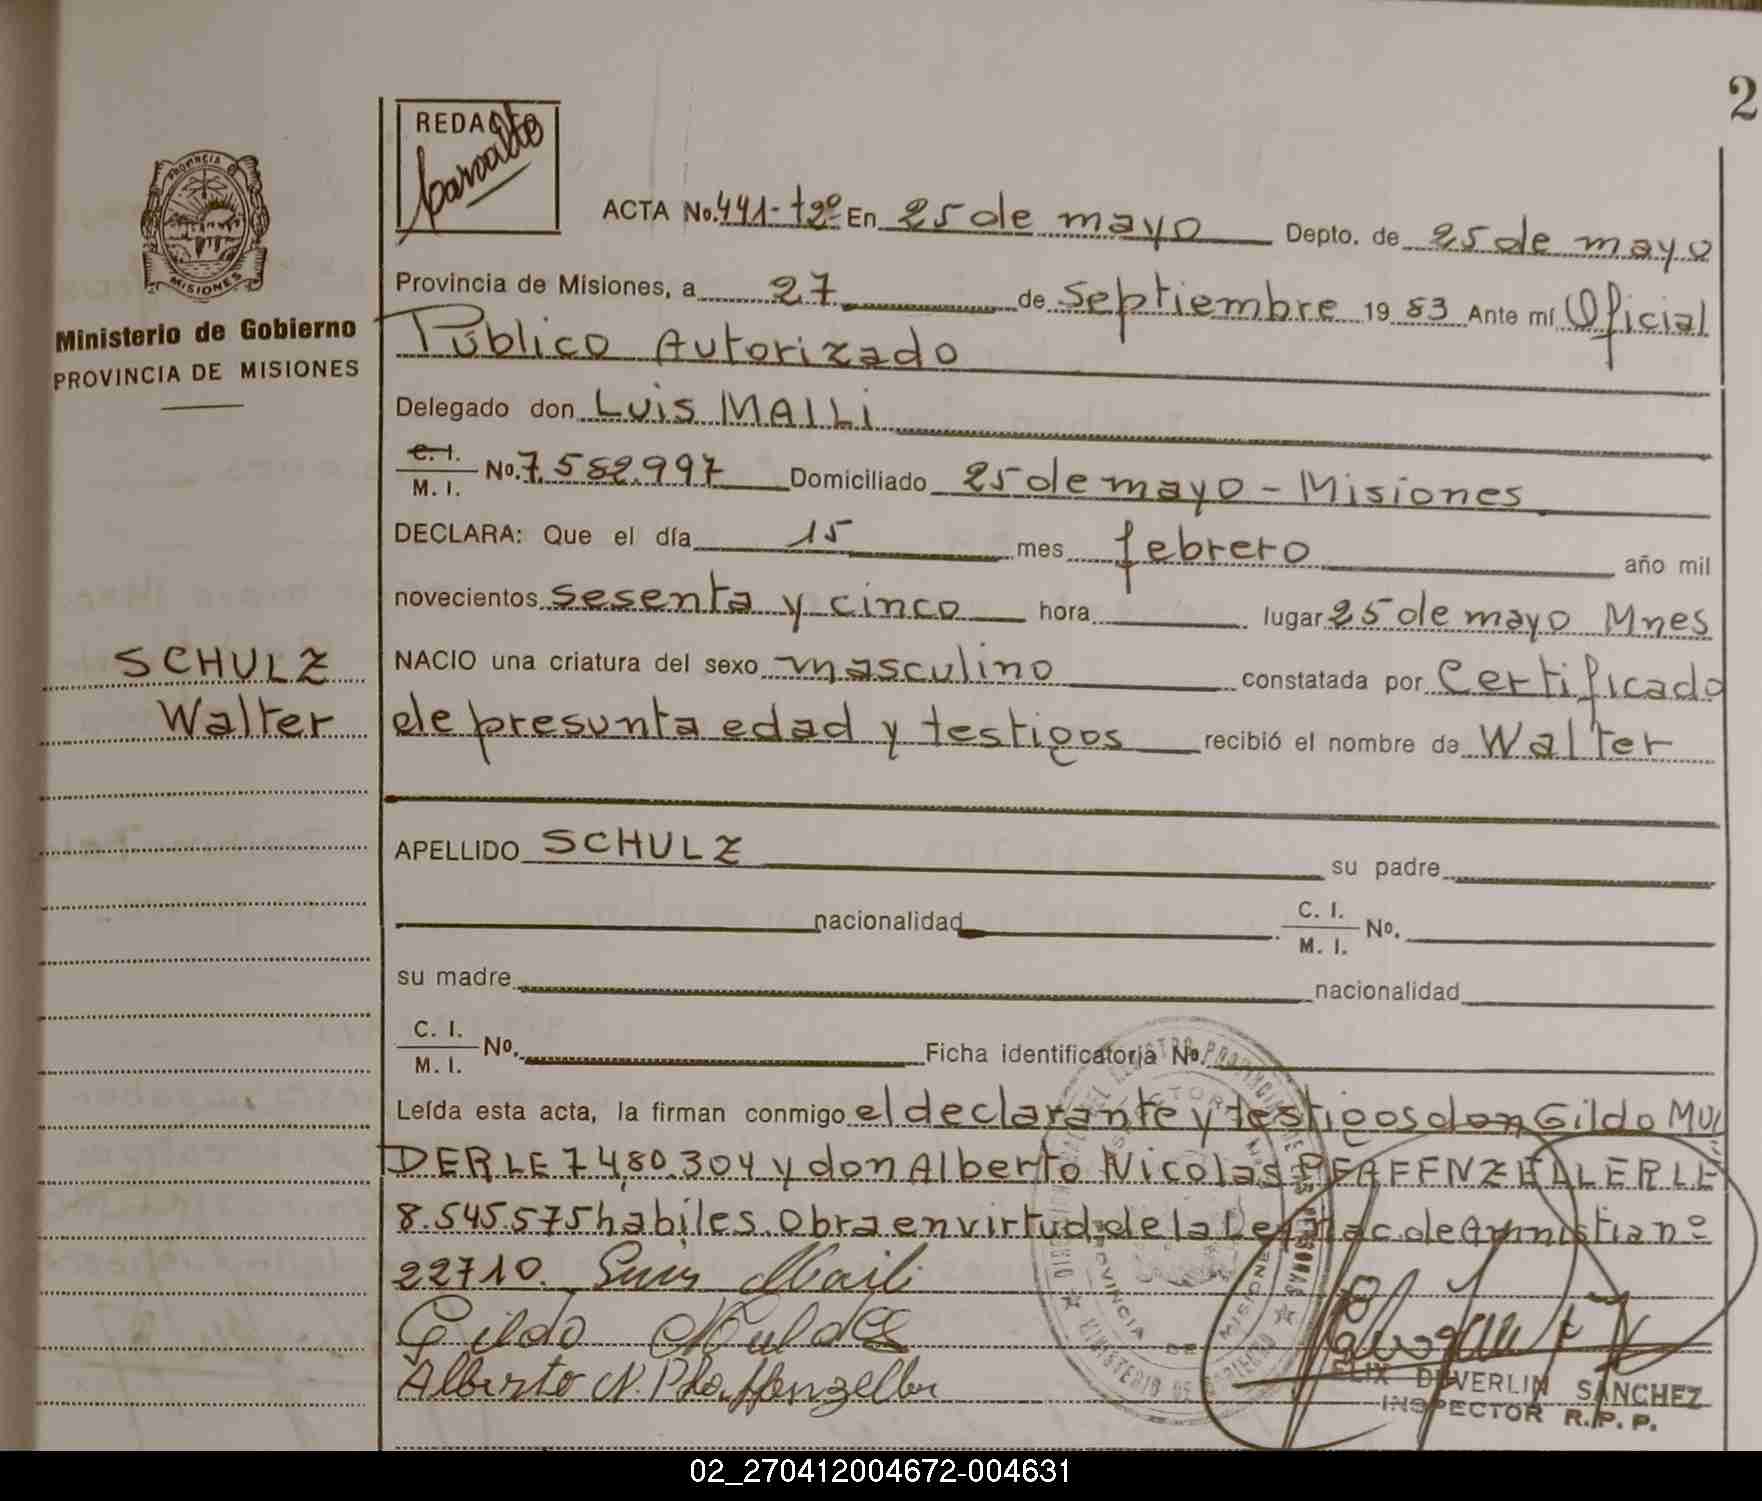 2
REDACTO
ACTA No. 441-t2º En 25 de mayo Depto. de 25 de mayo
PROVINCIA
MISIONES
Provincia de Misiones, a 27 de septiembre 1983 Ante mí Oficial
Ministerio de Gobierno
PROVINCIA DE MISIONES
Público Autorizado
Delegado don Luis MAILI
C. I.
M. I. No. 7.582.997 Domiciliado 25 de mayo - Misiones
DECLARA: Que el día 15 mes febrero año mil
novecientos sesenta y cinco hora lugar 25 de mayo Mnes
SCHULZ
Walter
NACIO una criatura del sexo masculino constatada por Certificado
de presunta edad y testigos recibió el nombre de Walter
APELLIDO SCHULZ su padre
nacionalidad C. I. M. I. No.
su madre nacionalidad
C. I. M. I. No. Ficha identificatoria No.
Leída esta acta, la firman conmigo el declarante y testigos don Gildo MUL
DER LE 7.480.304 y don Alberto Nicolas PFAFFENZELLER LE
8.545.575 habiles. Obra en virtud de la Ley nac. de Amnistia nº
22710. Luis Maili
Gildo Mulder
Alberto N. Pfaffenzeller
FELIX DUVERLIN SANCHEZ
INSPECTOR R. P. P.
02_270412004672-004631